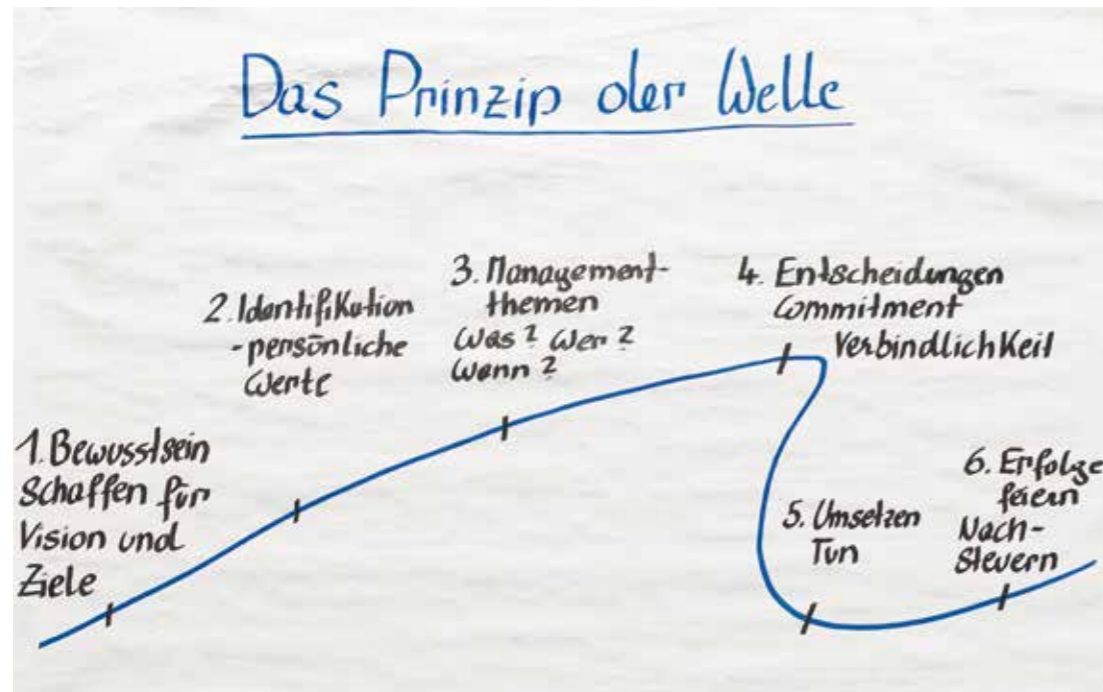 Das Prinzip der Welle
1. Bewusstsein
schaffen für
Vision und
Ziele
2. Identifikation
- persönliche
Werte
3. Management-
themen
Was? Wer?
Wann?
4. Entscheidungen
Commitment
Verbindlichkeit
5. Umsetzen
Tun
6. Erfolge
feiern
Nach-
steuern